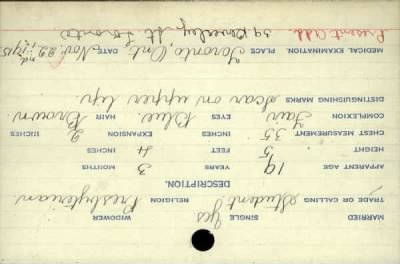 MARRIED SINGLE Yes WIDOWER
TRADE OR CALLING Student RELIGION Presbyterian
DESCRIPTION.
APPARENT AGE 19 YEARS 3 MONTHS
HEIGHT 5 FEET 4 INCHES
CHEST MEASUREMENT 35 INCHES EXPANSION 2 INCHES
COMPLEXION Fair EYES Blue. HAIR Brown
DISTINGUISHING MARKS Scar on upper lip.
MEDICAL EXAMINATION. PLACE Toronto, Ont. DATE Nov. 22nd, 1915
Present Add. 39 Beverley St. Toronto